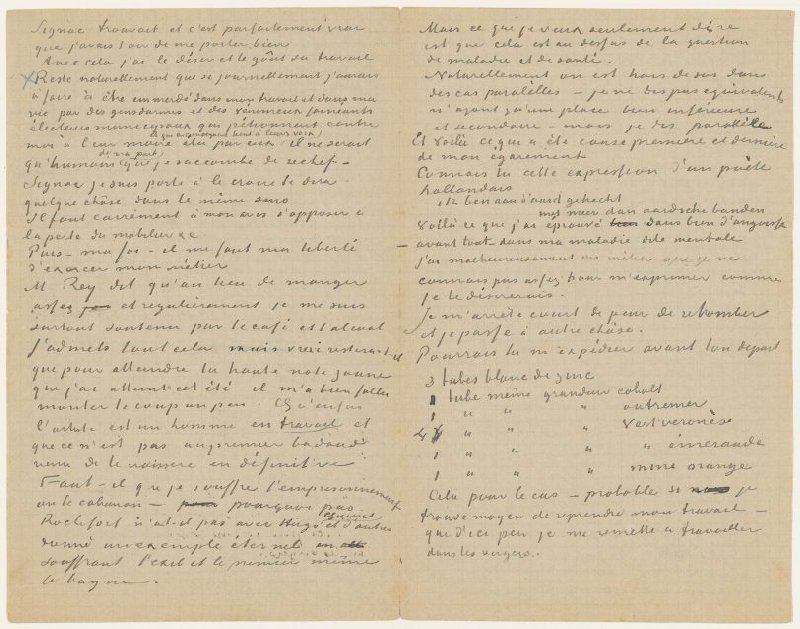 Signac trouvait et c'est parfaitement vrai
que j'avais l'air de me porter bien
Avec cela j'ai le désir et le goût du travail
Reste naturellement que si journellement j'aurais
à faire à être emmerdé dans mon travail et dans ma
vie par des gendarmes et des venimeux fainéants
d'électeurs municipaux qui pétitionnent contre
(et qui argueront tant à leurs voix)
moi à leur maire élu par eux il ne serait
de ma part
qu'humain que je succombe de rechef –
Signac je suis porté à le croire te dira
quelque chose dans le même sens
Il faut carrément à mon avis s'opposer à
la perte du mobilier &c
Puis – ma foi – il me faut ma liberté
d'exercer mon métier
M. Rey dit qu'au lieu de manger
assez et régulièrement je me suis
surtout soutenu par le café et l'alcool
J'admets tout cela mais vrai restera-t-il
que pour atteindre la haute note jaune
que j'ai atteinte cet été il m'a bien fallu
monter le coup un peu. Qu'enfin
l'artiste est un homme en travail et
que ce n'est pas au premier badaud
venu de le vaincre en définitive
Faut-il que je souffre l'emprisonnement
ou le cabanon – pourquoi pas
Rochefort n'a-t-il pas avec Hugo et d'autres
donné un exemple éternel en
souffrant l'exil et le premier même
le bagne.
Mais ce que je veux seulement dire
est que cela est au dessus de la question
de maladie et de santé.
Naturellement on est hors de soi dans
des cas parallèles – je ne dis pas équivalents
n'ayant qu'une place bien inférieure
et secondaire – mais je dis parallèle
Et voilà ce qui a été cause première et dernière
de mon égarement
Connais tu cette expression d'un poète
hollandais
ik ben aan d'aard gehecht
met meer dan aardsche banden
Voilà ce que j'ai éprouvé dans bien d'angoisse
– avant tout – dans ma maladie dite mentale
J'ai malheureusement un métier que je ne
connais pas assez pour m'exprimer comme
je le désirerais.
Je m'arrête court de peur de retomber
et je passe à autre chose.
Pourrais tu m'expédier avant ton départ
3 tubes blanc de zinc
1 tube même grandeur cobalt
1 " " " outremer
4 " " " vert veronèse
1 " " " " émeraude
1 " " " mine orange
Cela pour le cas – probable si je
trouve moyen de reprendre mon travail –
que d'ici peu je me remette à travailler
dans les vergers.